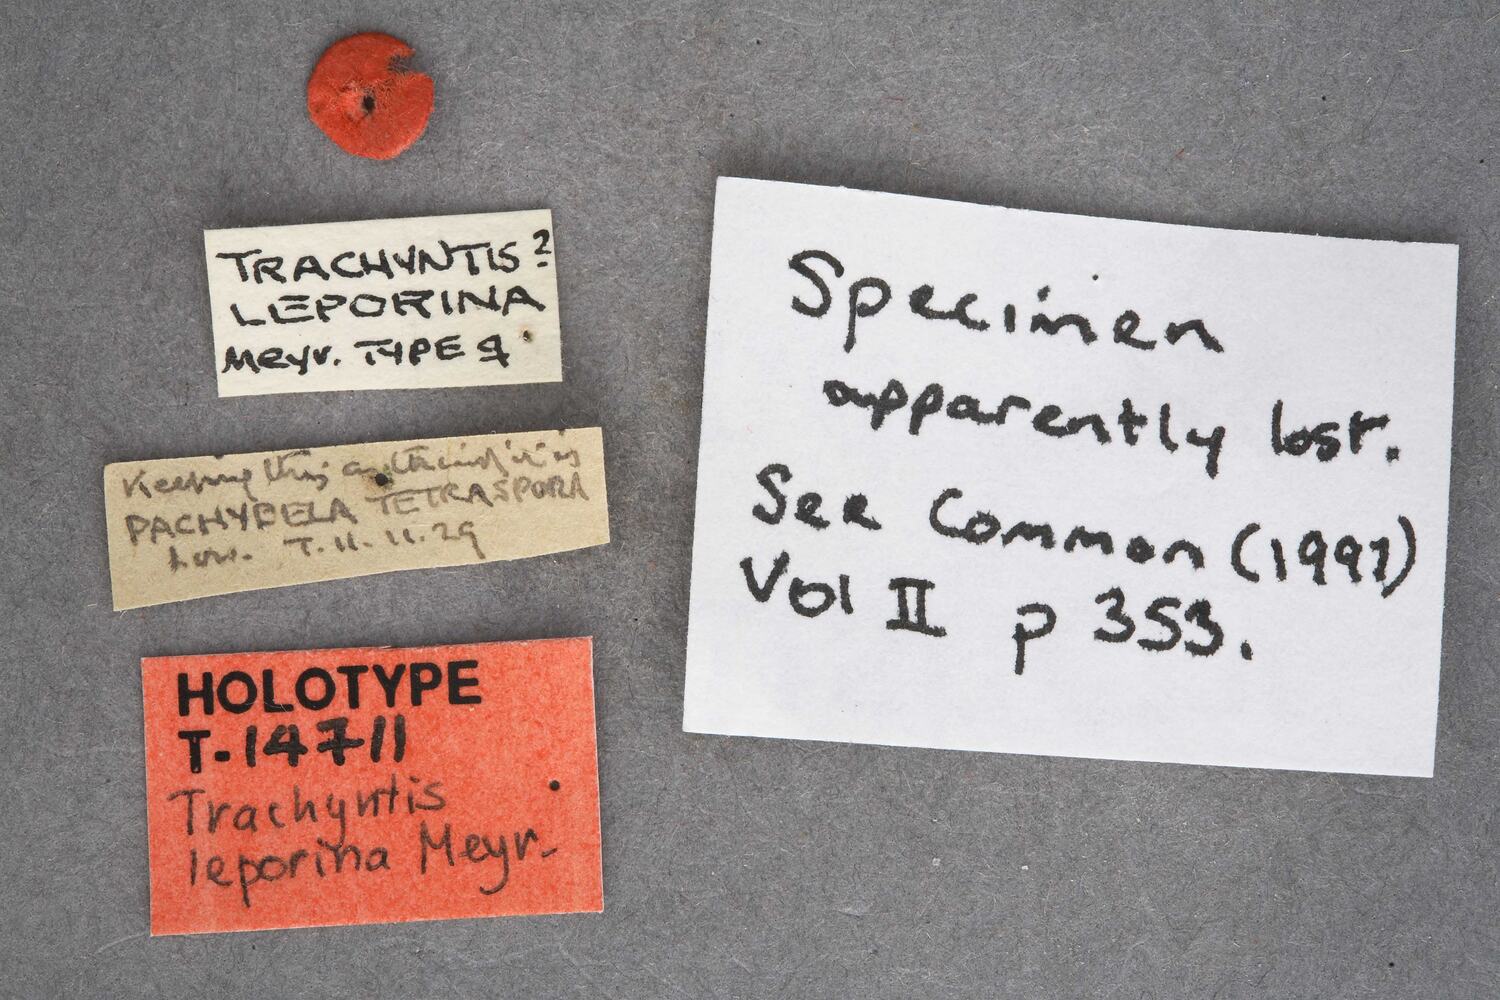 TRACHYNTIS?
LEPORINA
Meyr. TYPE ♀
Keeping this as it is
PACHYBELA TETRASPORA
Low. T. 11.11.29
HOLOTYPE
T-14711
Trachyntis
leporina Meyr.
Specimen
apparently lost.
See Common (1997)
Vol II p 353.